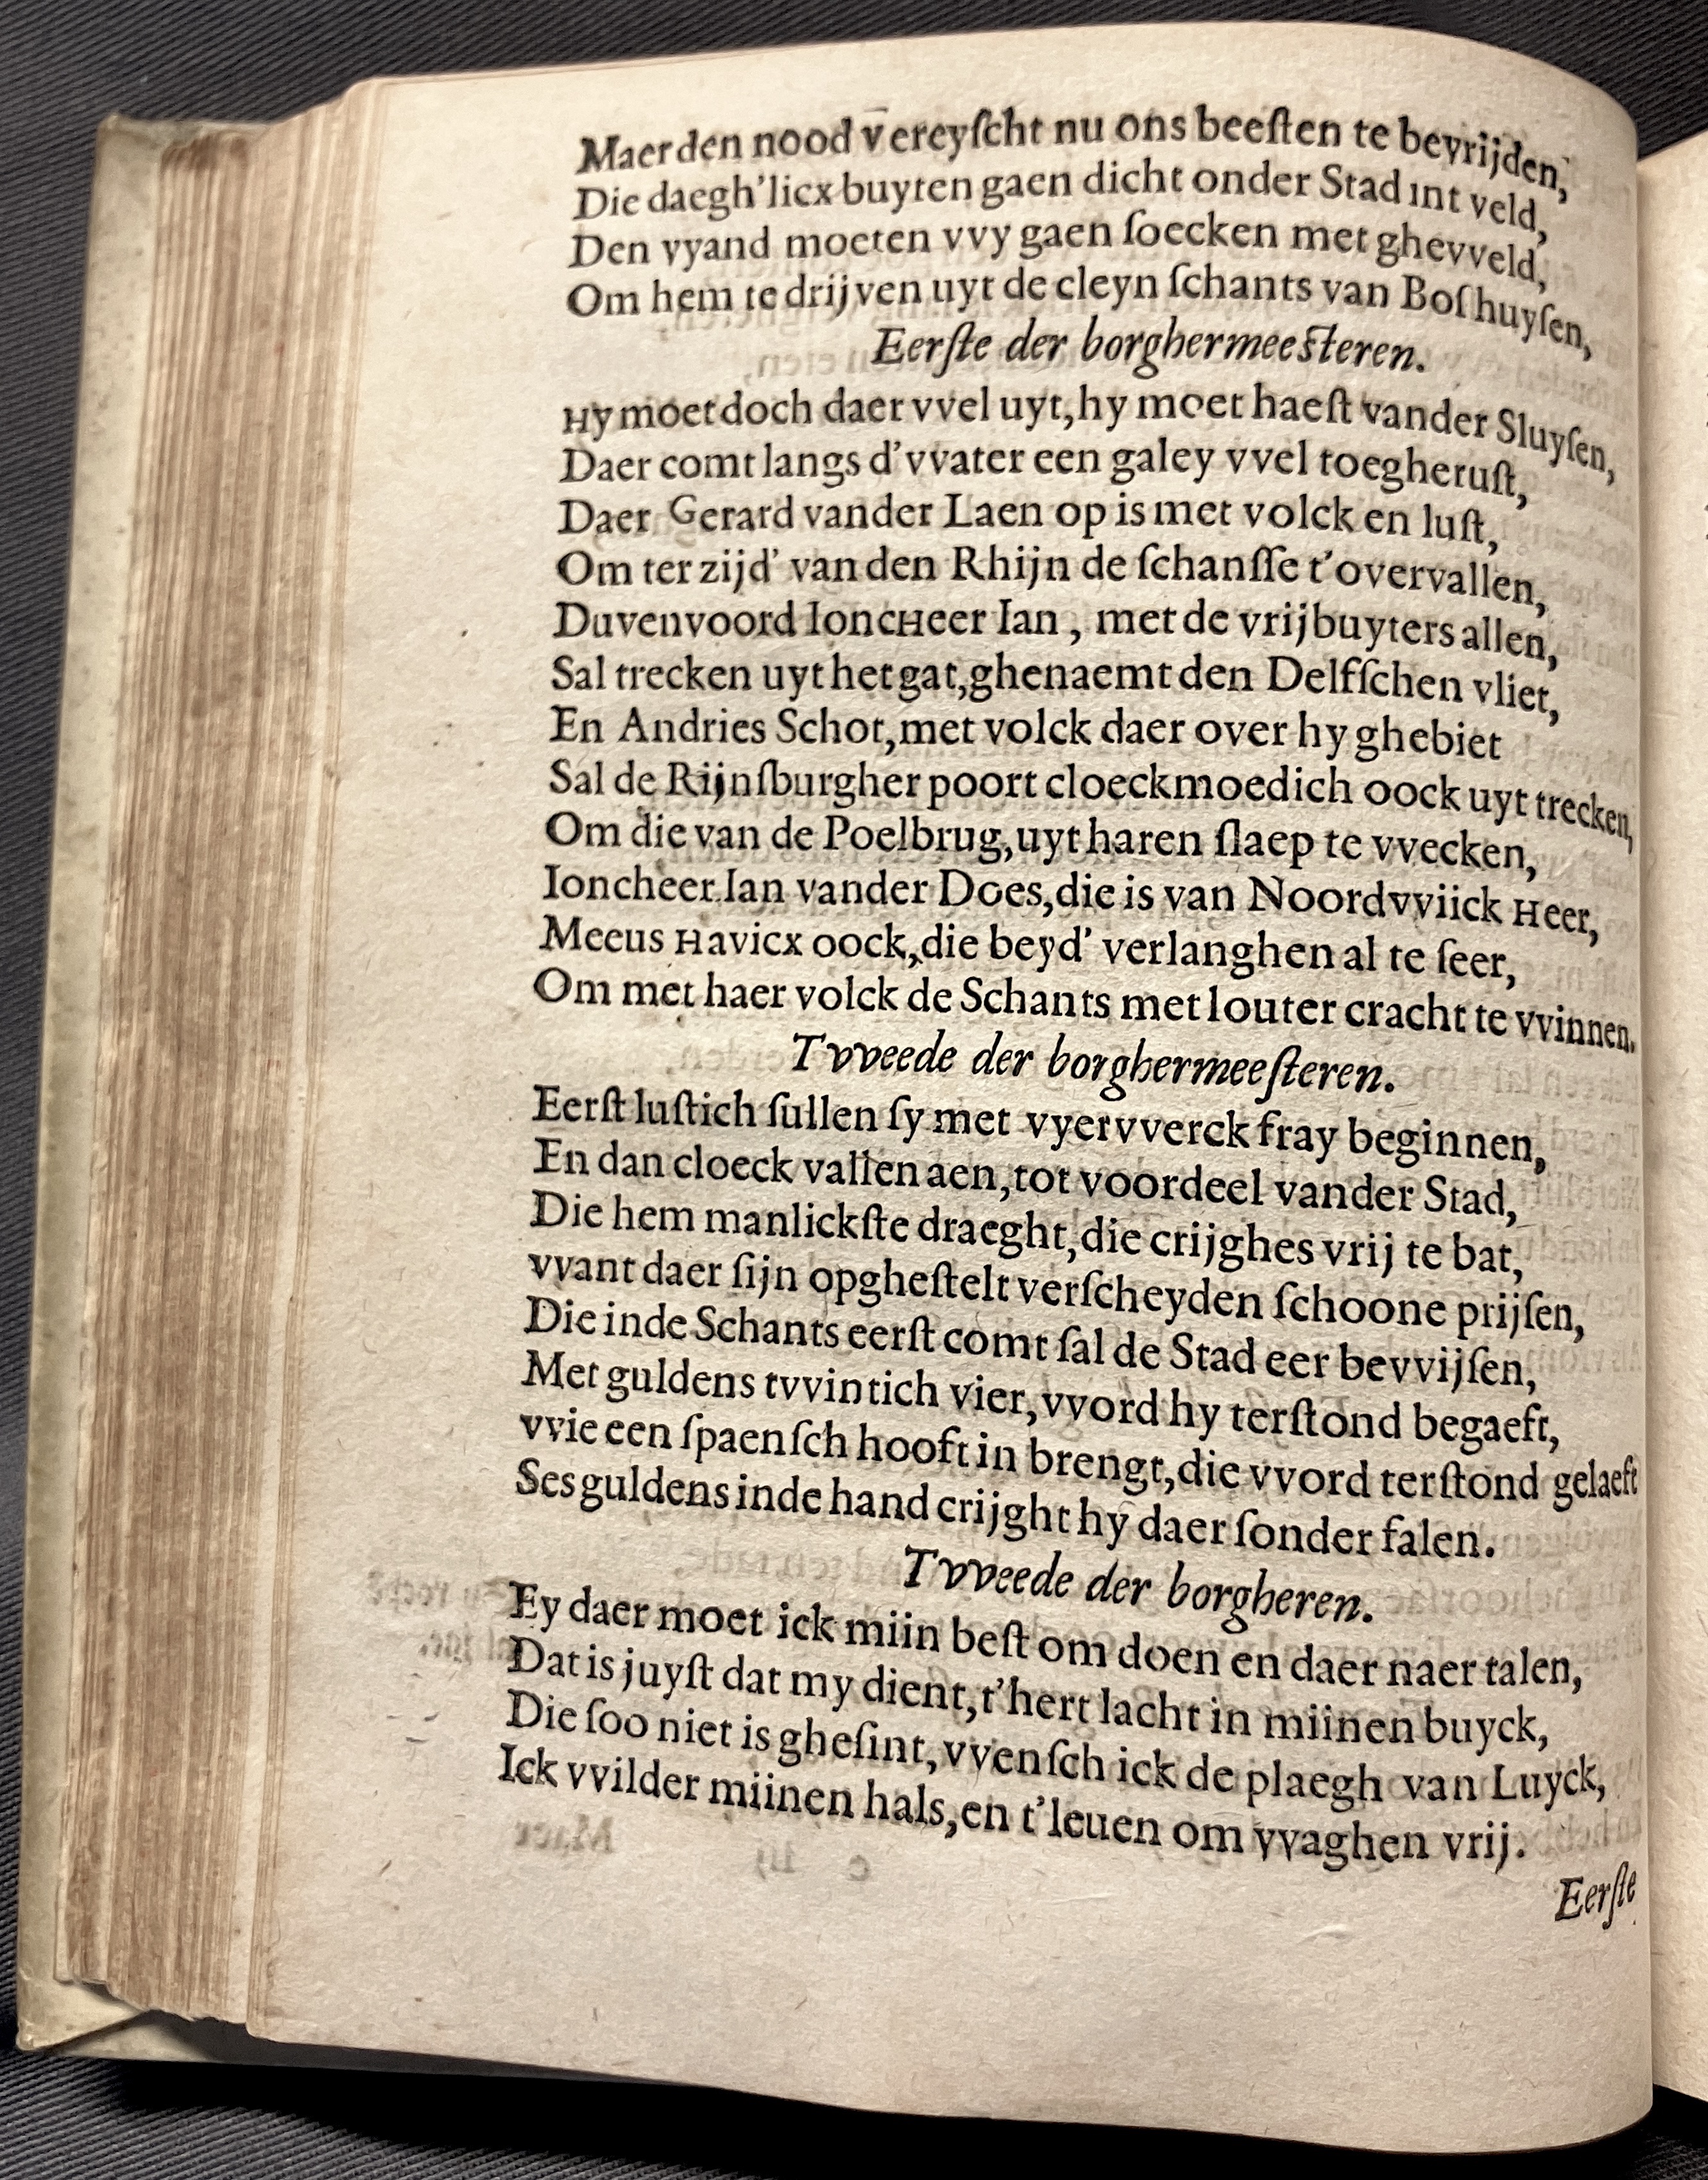 Maer den nood vereyſcht nu ons beeſten te bevrijden,
Die daegh'licx buyten gaen dicht onder Stad int veld,
Den vyand moeten vvy gaen ſoecken met ghevveld,
Om hem te drijven uyt de cleyn ſchants van Boſhuyſen,
Eerſte der borghermeeſteren.
Hy moet doch daer vvel uyt, hy moet haeſt vander Sluyſen,
Daer comt langs d'vvater een galey vvel toegheruſt,
Daer Gerard vander Laen op is met volck en luſt,
Om ter zijd' van den Rhijn de ſchanſſe t'overvallen,
Duvenvoord IoncHeer Ian, met de vrijbuyters allen,
Sal trecken uyt het gat, ghenaemt den Delfſchen vliet,
En Andries Schot, met volck daer over hy ghebiet
Sal de Rijnſburgher poort cloeckmoedich oock uyt trecken,
Om die van de Poelbrug, uyt haren ſlaep te vvecken,
Ioncheer Ian vander Does, die is van Noordvviick Heer,
Meeus Havicx oock, die beyd' verlanghen al te ſeer,
Om met haer volck de Schants met louter cracht te vvinnen.
Tvveede der borghermeeſteren.
Eerſt luſtich ſullen ſy met vyervverck fray beginnen,
En dan cloeck vallen aen, tot voordeel vander Stad,
Die hem manlickſte draeght, die crijghes vrij te bat,
vvant daer ſijn opgheſtelt verſcheyden ſchoone prijſen,
Die inde Schants eerſt comt ſal de Stad eer bevvijſen,
Met guldens tvvintich vier, vvord hy terſtond begaeft,
vvie een ſpaenſch hooft in brengt, die vvord terſtond gelaeft
Ses guldens inde hand crijght hy daer ſonder falen.
Tvveede der borgheren.
Ey daer moet ick miin beſt om doen en daer naer talen,
Dat is juyſt dat my dient, t'hert lacht in miinen buyck,
Die ſoo niet is gheſint, vvenſch ick de plaegh van Luyck,
Ick vvilder miinen hals, en t'leuen om vvaghen vrij.
Eerſte